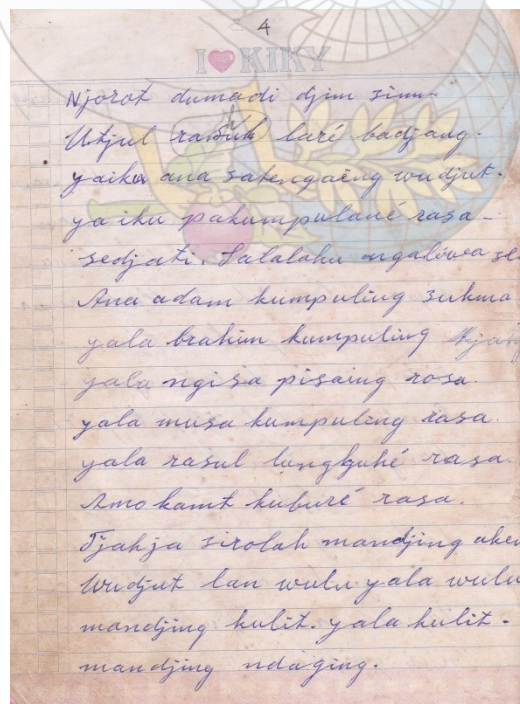 4
I ♥ KIKY
Njorot dumadi djim
Utjul rasuk laré badjang.
yaiku ana satengaéng wudjut.
ya iku pakumpulané rasa -
sedjati. Salalahu ngalaiwa
Ana adam kumpuling sukma
yala brahim kumpuling
yala ngisa pisaing rosa.
yala musa kumpuling rasa.
yala rasul lungguhé rasa.
Amo kamt kuburé rasa.
Tjahja sirolah mandjing
Wudjut lan wulu yala wulu
mandjing kulit. yala kulit.
mandjing ndaging.